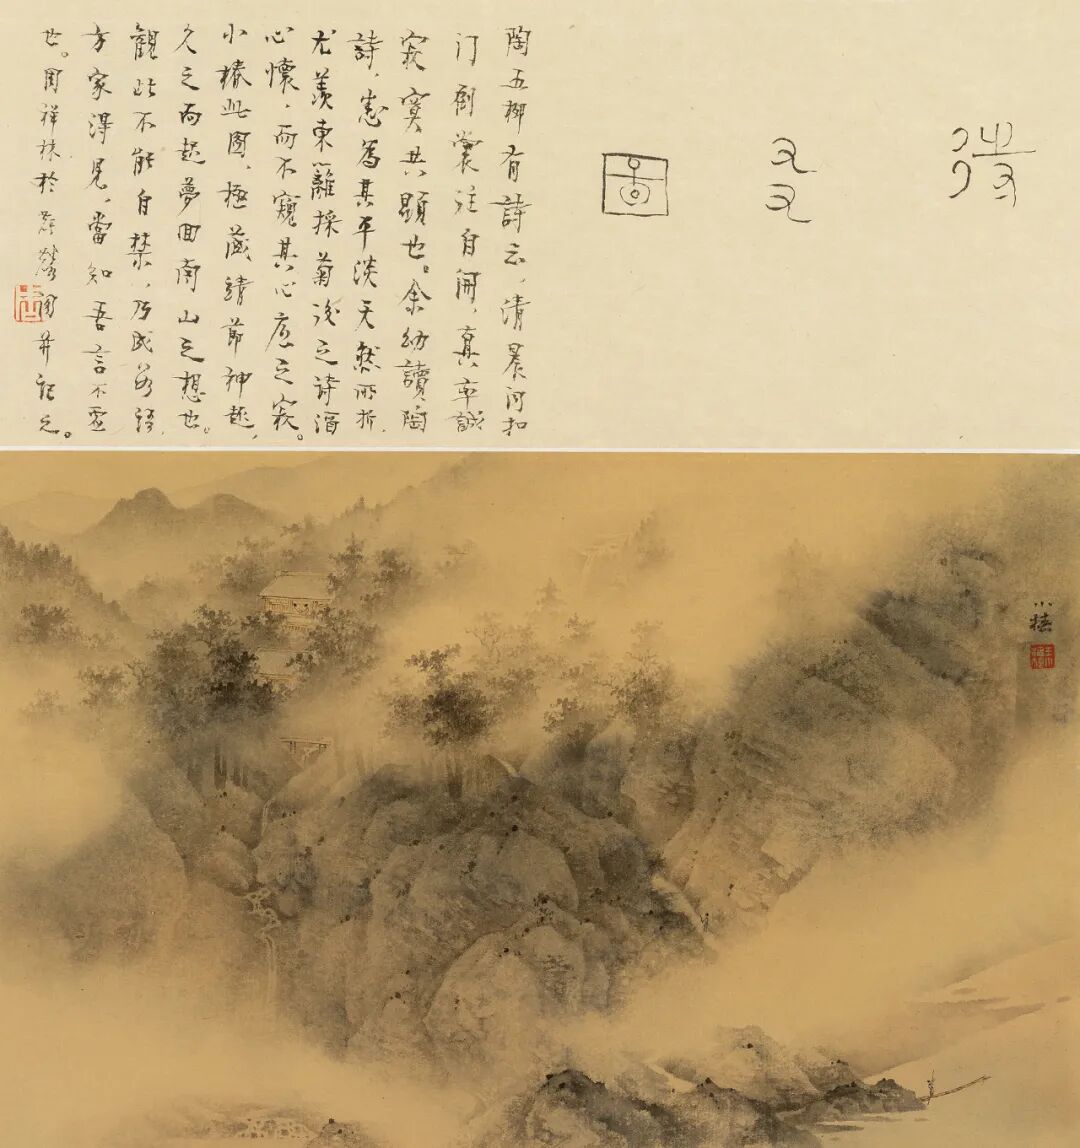 待友圖
陶五柳有詩云，清晨聞扣
门倒裳往自開，真率誠
寂寞共顯也。余幼讀陶
詩，為其平淡天然所折，
尤羨東籬採菊後之詩酒
心懷，而不窺其心底之寂。
小椿此圖，極靖節神趣，
久之而起夢回南山之想也。
觀此不能自禁，乃成語，
方家得見，當知吾言不虛
也。周祥林於并記之。
小椿